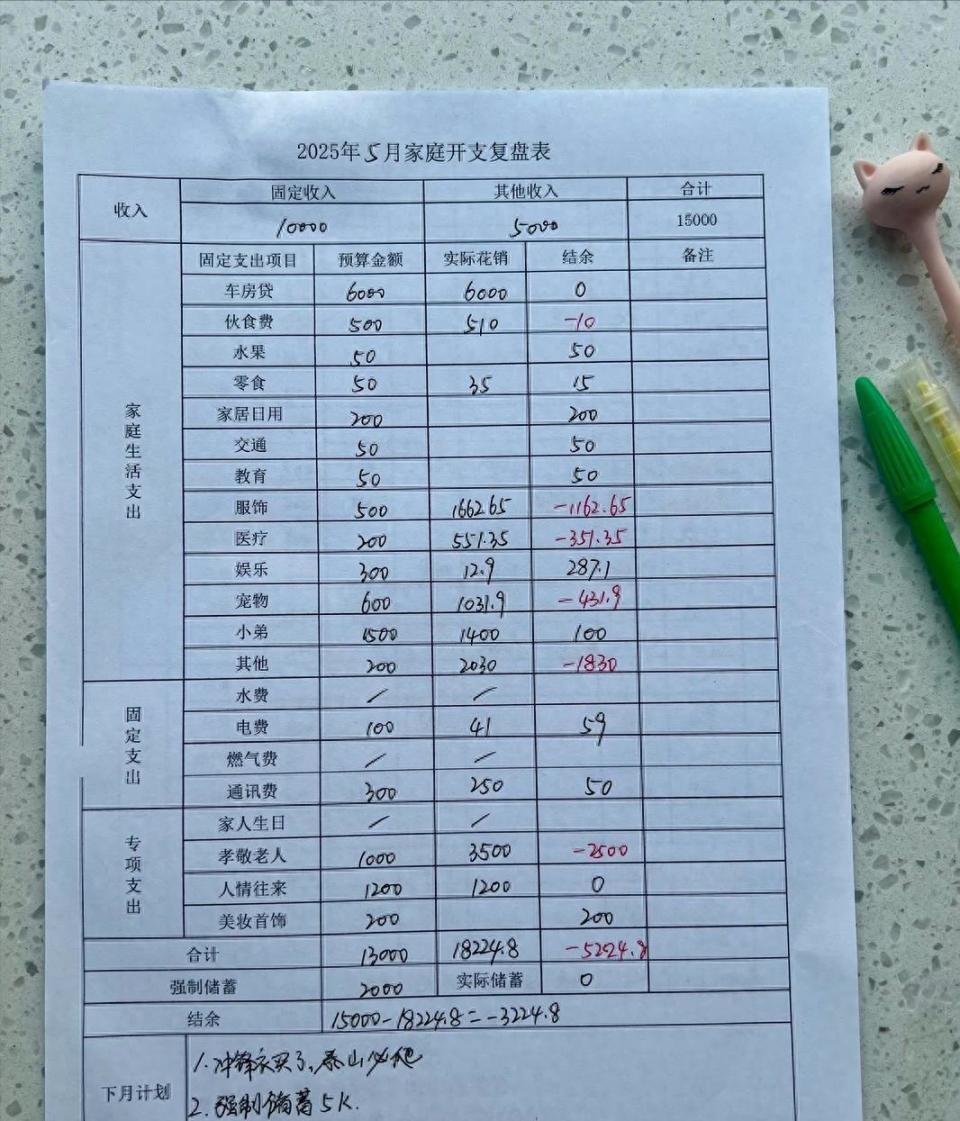 2025年5月家庭开支复盘表
收入 固定收入 其他收入 合计
10000 5000 15000
家庭生活支出 固定支出项目 预算金额 实际花销 结余 备注
车房贷 6000 6000 0
伙食费 500 510 -10
水果 50 50
零食 50 35 15
家居日用 200 200
交通 50 50
教育 50 50
服饰 500 1662.65 -1162.65
医疗 200 551.35 -351.35
娱乐 300 12.9 287.1
宠物 600 1031.9 -431.9
小弟 1500 1400 100
其他 200 2030 -1830
固定支出 水费 / /
电费 100 41 59
燃气费 / /
通讯费 300 250 50
专项支出 家人生日 / /
孝敬老人 1000 3500 -2500
人情往来 1200 1200 0
美妆首饰 200 200
合计 13000 18224.8 -5224.8
强制储蓄 2000 实际储蓄 0
结余 15000-18224.8=-3224.8
下月计划 1. 冲锋衣买了,泰山必爬
2. 强制储蓄5K.